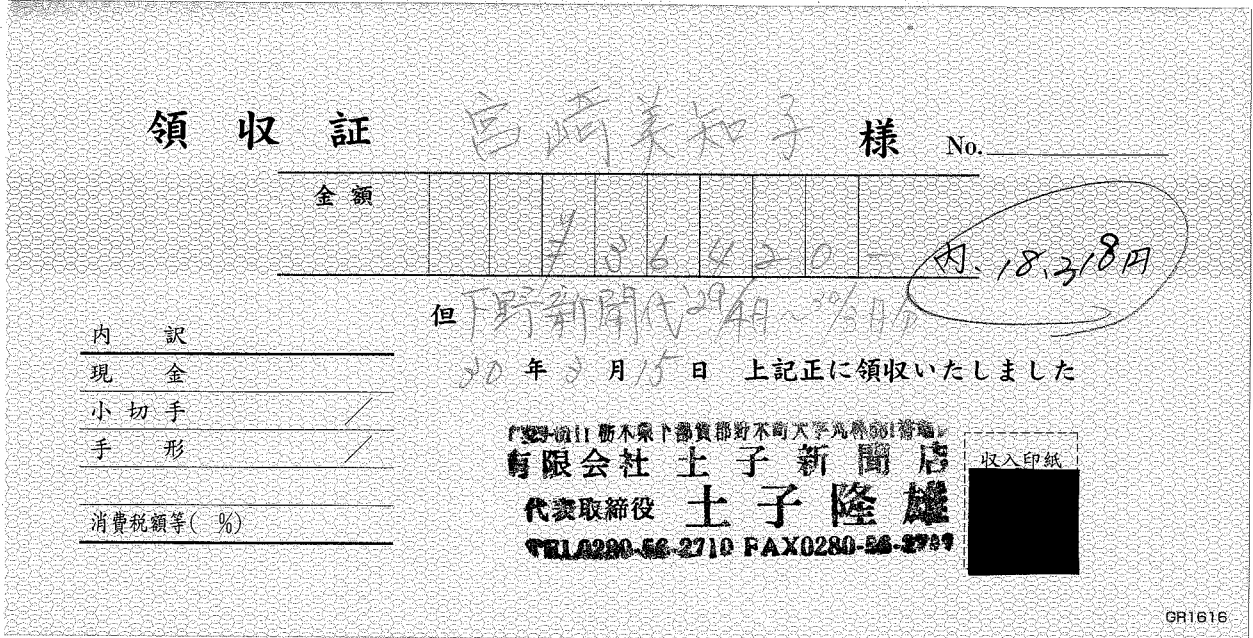 領収証 宮崎美知子 様 No.
金額 ¥36420-
内、18,318円
但 下野新聞代 '29/4月~30/3月分
30年3月15日 上記正に領収いたしました
内訳
現金
小切手 /
手形 /
消費税額等( %)
栃木県下都賀郡野木町大字丸林
有限会社 土子新聞店
代表取締役 土子隆雄
TEL0280-56-2710 FAX0280-56-
収入印紙
GR1616